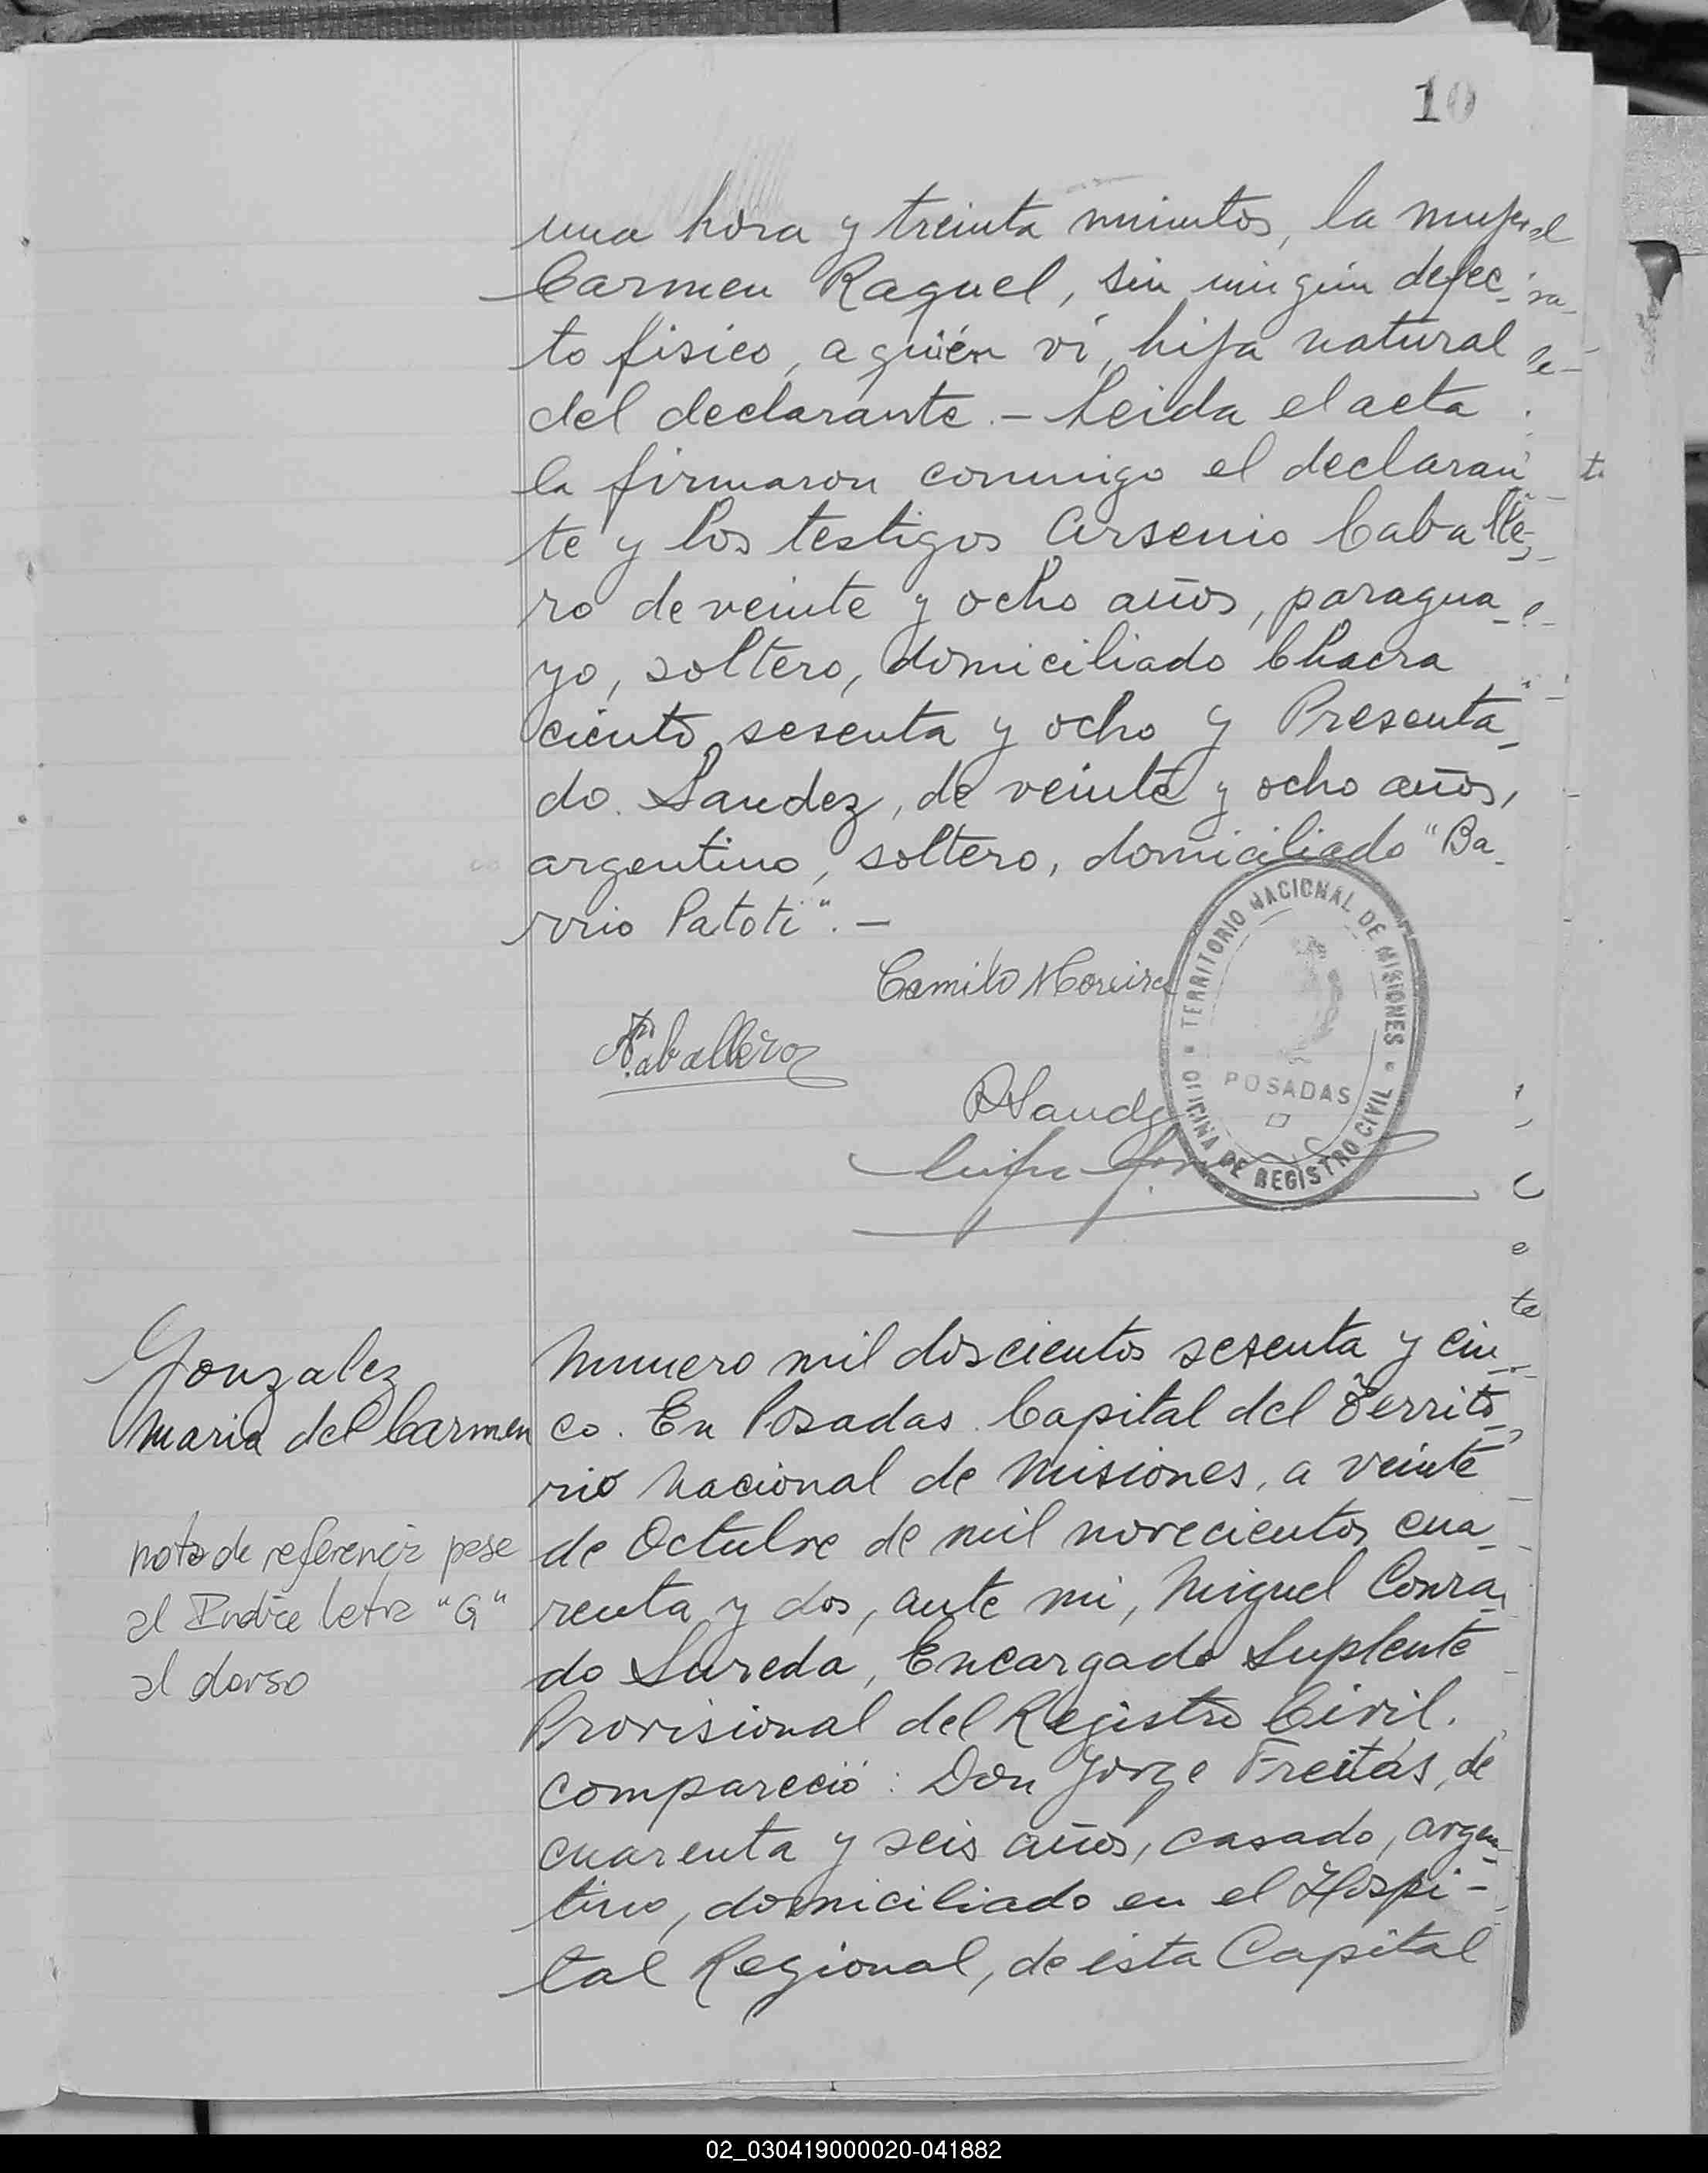 10
una hora y treinta minutos, la mujer
Carmen Raquel, sin ningún defec-
to fisico, a quién ví, hija natural
del declarante. - Leida el acta
la firmaron conmigo el declaran
te y los testigos Arsenio Caballe-
ro de veinte y ocho años, paragua-
yo, soltero, domiciliado Chacra
ciento sesenta y ocho y Presenta-
do Sandez, de veinte y ocho años,
argentino, soltero, domiciliado "Ba-
rrio Patoti". -
Camilo Moreira
Caballero
TERRITORIO NACIONAL DE MISIONES
POSADAS
OFICINA DE REGISTRO CIVIL
Gonzalez
Maria del Carmen
nota de referencia pase
al Indice letra "G"
al dorso
Numero mil doscientos sesenta y cin-
co. En Posadas Capital del Territo-
rio Nacional de Misiones, a veinte
de Octubre de mil novecientos cua-
renta y dos, ante mi, Miguel Conra-
do Sureda, Encargado Suplente
Provisional del Registro Civil.
compareció: Don Jorge Freitas, de
cuarenta y seis años, casado, argen-
tino, domiciliado en el Hospi-
tal Regional, de ésta Capital
02_030419000020-041882